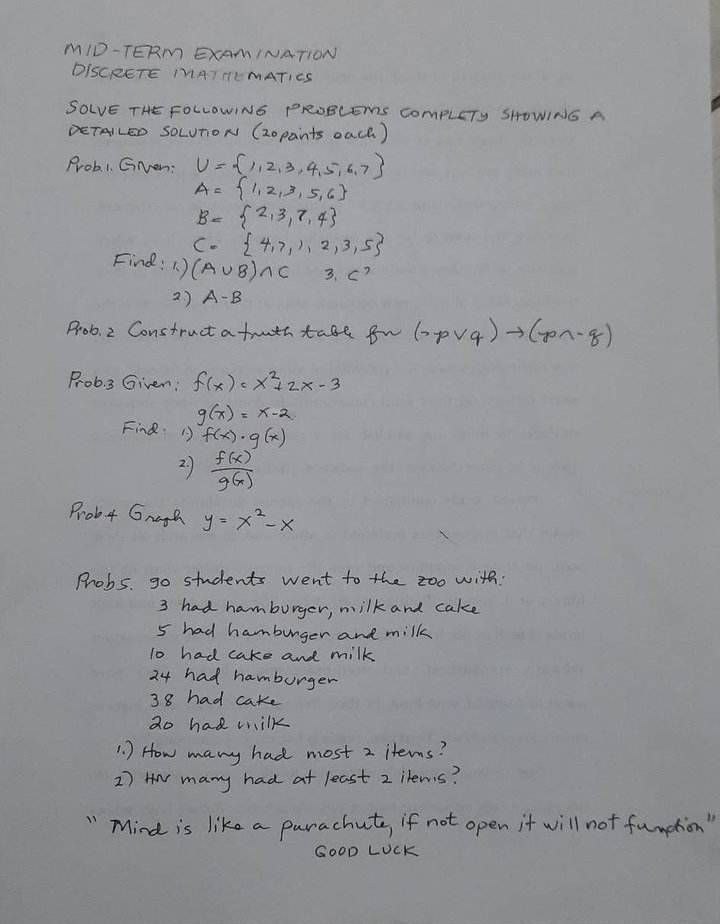 MID-TERM EXAMINATION
DISCRETE MATHEMATICS
SOLVE THE FOLLOWING PROBLEMS COMPLETY SHOWING A
DETAILED SOLUTION (20 points each)
Prob.1. Given: U = {1,2,3,4,5,6,7}
A = {1,2,3,5,6}
B = {2,3,7,4}
C = {4,7,1,2,3,5}
Find: 1.) (A∪B)∩C 3. C'
2.) A-B
Prob.2 Construct a truth table for (~p∨q)→(~p∧~q)
Prob.3 Given: f(x) = x²+2x-3
g(x) = x-2
Find: 1.) f(x)·g(x)
2.) f(x)/g(x)
Prob4 Graph y = x²-x
Prob5. 90 students went to the zoo with:
3 had hamburger, milk and cake
5 had hamburger and milk
10 had cake and milk
24 had hamburger
38 had cake
20 had milk
1.) How many had most 2 items?
2) How many had at least 2 items?
"Mind is like a parachute, if not open it will not function"
GOOD LUCK